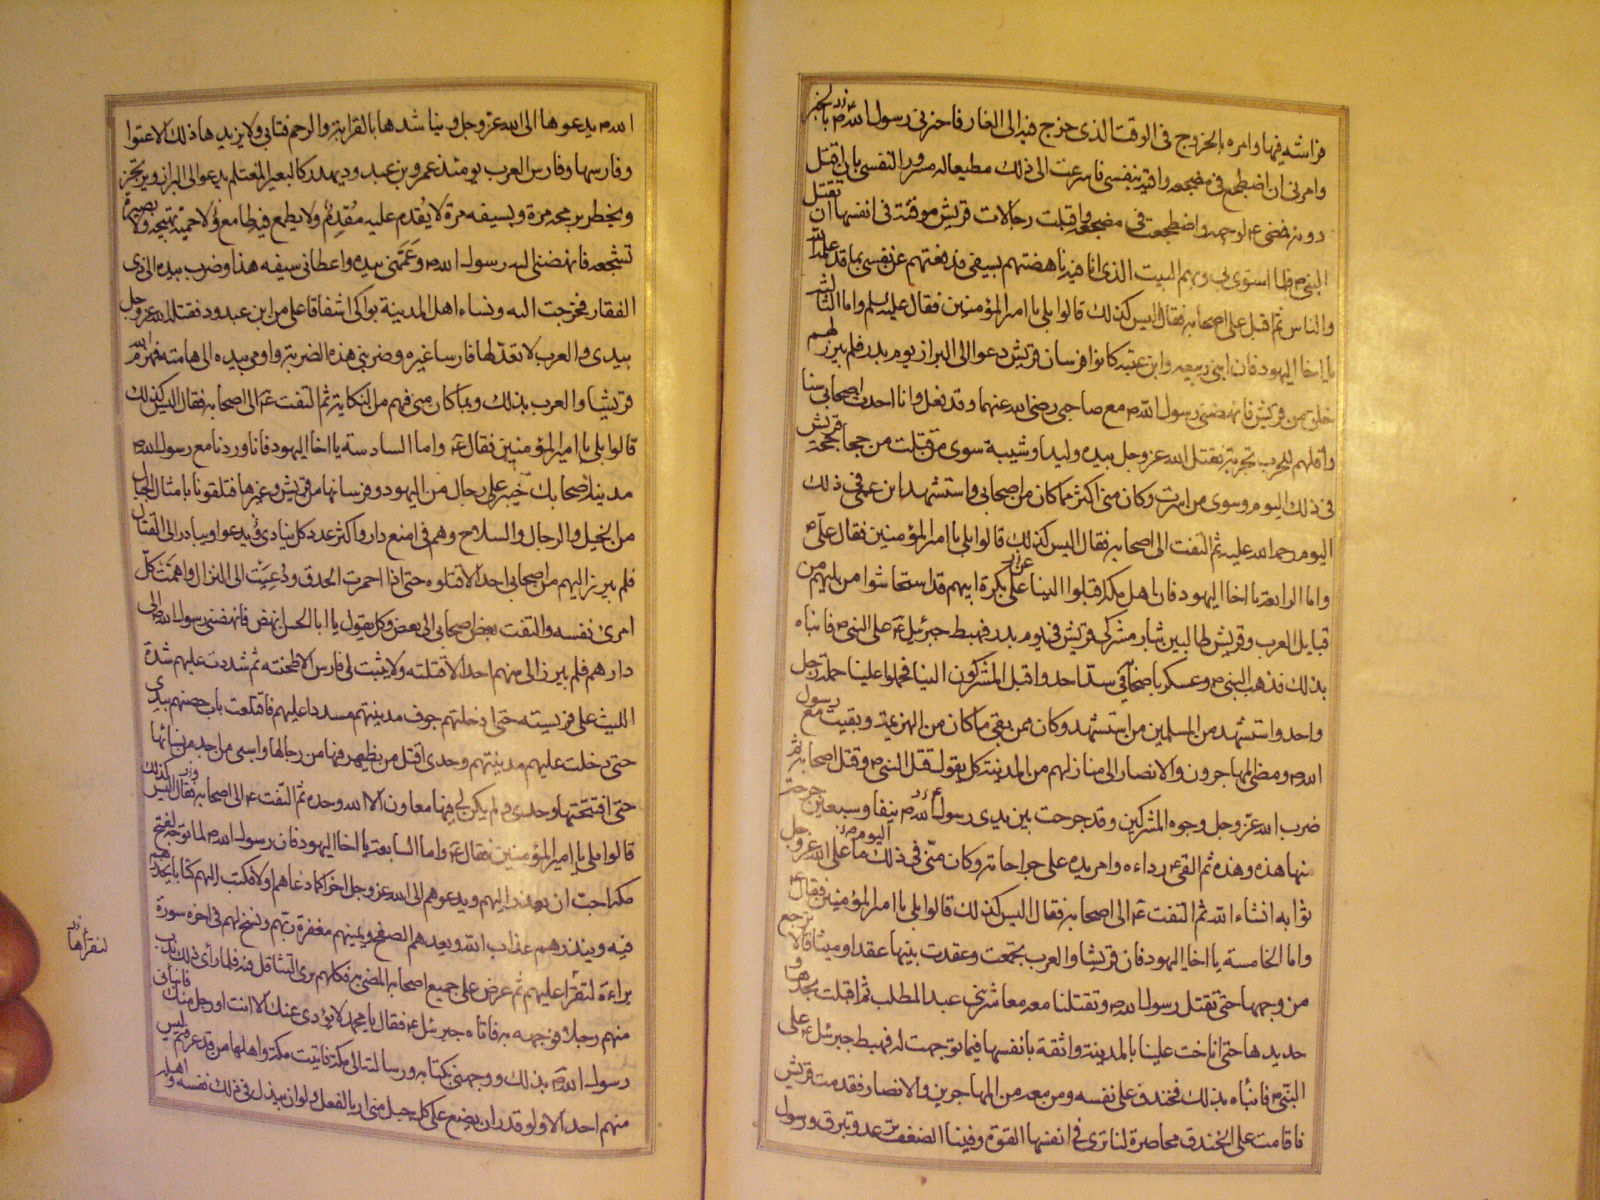 فراشه فيها وامره بالخروج فى الوقت الذى خرج فيه الى الغار فاخبرنى رسول الله ص بالخبر
وامرنى ان اضطجع فى مضجعه واقيه بنفسى فاسرعت الى ذلك مطيعا له مسرورا لنفسى بان اقتل
دونه فمضى ع لوجهه واضطجعت فى مضجعه واقبلت رجالات قريش موقنة فى انفسها ان تقتل
النبى ص فلما استوى بى وبهم البيت الذى انا فيه ناهضتهم بسيفى فدفعتهم عن نفسى بما قد علمه الله
والناس ثم اقبل على اصحابه فقال اليس كذلك قالوا بلى يا امير المؤمنين فقال عليه السلم واما الثالثه
يا اخا اليهود فان ابنى ربيعه وابن عتبه كانوا فرسان قريش دعوا الى البراز يوم بدر فلم يبرز لهم
خلق من قريش فانهضنى رسول الله ص مع صاحبى رضى الله عنهما وقد فعل وانا احدث اصحابى سنا
واقلهم للحرب تجربة فقتل الله عز وجل بيدى وليدا وشيبة سوى من قتلت من جحاجحة قريش
فى ذلك اليوم وسوى من اسرت وكان منى اكثر مما كان من اصحابى واستشهد ابن عمى فى ذلك
اليوم رحمة الله عليه ثم التفت الى اصحابه فقال اليس كذلك قالوا بلى يا امير المؤمنين فقال على ع
واما الرابعة يا اخا اليهود فان اهل مكة اقبلوا الينا على بكرة ابيهم قد استحاشوا من يليهم من
قبايل العرب وقريش طالبين بثار مشركى قريش فى يوم بدر فهبط جبرئيل ع على النبى ص فانباه
بذلك فذهب النبى ص وعسكر باصحابه فى سد احد واقبل المشركون الينا فحملوا علينا حملة رجل
واحد واستشهد من المسلمين من استشهد وكان ممن بقى ما كان من الهزيمة وبقيت مع رسول
الله ص ومضى المهاجرون والانصار الى منازلهم من المدينة كل يقول قتل النبى ص وقتل اصحابه ثم
ضرب الله عز وجل وجوه المشركين وقد جرحت بين يدى رسول الله ص نيفا وسبعين جرحة
منها هذه وهذه ثم القى ع رداءه وامر يده على جراحاته وكان منى فى ذلك اليوم ما على الله عز وجل
ثوابه انشاء الله ثم التفت ع الى اصحابه فقال اليس كذلك قالوا بلى يا امير المؤمنين فقال ع
واما الخامسة يا اخا اليهود فان قريشا والعرب تجمعت وعقدت بينها عقدا وميثاقا لا ترجع
من وجهها حتى تقتل رسول الله ص وتقتلنا معه معاشر بنى عبد المطلب ثم اقبلت بحدها و
حديدها حتى اناخت علينا بالمدينة واثقة بانفسها فيما توجهت له فهبط جبرئيل ع على
النبى ص فانباه بذلك فخندق على نفسه ومن معه من المهاجرين والانصار فقدمت قريش
فاقامت على الخندق محاصرة لنا ترى فى انفسها القوة وفينا الضعف ترعد وتبرق ورسول
الله ص يدعوها الى الله عز وجل ويناشدها بالقرابة والرحم فتابى ولا يزيدها ذلك الا عتوا
وفارسها وفارس العرب يومئذ عمرو بن عبد ود يهدر كالبعير المغتلم يدعو الى البراز ويرتجز
ويخطر برمحه مرة وبسيفه مرة لا يقدم عليه مقدم ولا يطمع فيه طامع ولا حمية تهيجه ولا بصيرة
تشجعه فانهضنى اليه رسول الله ص وعممنى بيده واعطانى سيفه هذا وضرب بيده الى ذى
الفقار فخرجت اليه ونساء اهل المدينة بواكى اشفاقا على من ابن عبد ود فقتله الله عز وجل
بيدى والعرب لا تعد لها فارسا غيره وضربنى هذه الضربة واومى بيده الى هامته فهزم الله
قريشا والعرب بذلك وبما كان منى فيهم من النكاية ثم التفت ع الى اصحابه فقال اليس كذلك
قالوا بلى يا امير المؤمنين فقال ع واما السادسه يا اخا اليهود فانا وردنا مع رسول الله ص
مدينة اصحابك خيبر على رجال من اليهود وفرسانها من قريش وغيرها فتلقونا بامثال الجبال
من الخيل والرجال والسلاح وهم فى امنع دار واكثر عدد كل ينادى ويدعو ويبادر الى القتال
فلم يبرز اليهم من اصحابى احد الا قتلوه حتى اذا احمرت الحدق ودعيت الى النزال واهمت كل
امرئ نفسه والتفت بعض اصحابى الى بعض وكل يقول يا ابا الحسن انهض فانهضنى رسول الله الى
دارهم فلم يبرز الى منهم احد الا قتلته ولا يثبت لى فارس الا طحنته ثم شددت عليهم شدة
الليث على فريسته حتى ادخلتهم جوف مدينتهم مسددا عليهم فاقتلعت باب حصنهم بيدى
حتى دخلت عليهم مدينتهم وحدى اقتل من يظهر فيها من رجالها واسبى من اجد من نسائها
حتى افتتحتها وحدى ولم يكن لى فيها معاون الا الله وحده ثم التفت ع الى اصحابه فقال اليس كذلك
قالوا بلى يا امير المؤمنين فقال ع واما السابعة يا اخا اليهود فان رسول الله ص لما توجه لفتح
مكة احب ان يعذر اليهم ويدعوهم الى الله عز وجل اخرا كما دعاهم اولا فكتب اليهم كتابا يحذرهم
فيه وينذرهم عذاب الله ويعدهم الصفح ويمنيهم مغفرة ربهم ونسخ لهم فى اخره سورة
براءة لتقرأ عليهم ثم عرض على جميع اصحابه المضى به فكلهم يرى التثاقل فيه فلما رأى ذلك ندب
منهم رجلا فوجهه به فاتاه جبرئيل ع فقال يا محمد لا يؤدى عنك الا انت او رجل منك فانبانى
رسول الله ص بذلك ووجهنى بكتابه ورسالته الى مكة فاتيت مكة واهلها من قد عرفتم ليس
منهم احد الا ولو قدر ان يضع على كل جبل منى اربا لفعل ولو ان يبذل فى ذلك نفسه واهله
لنقرأها